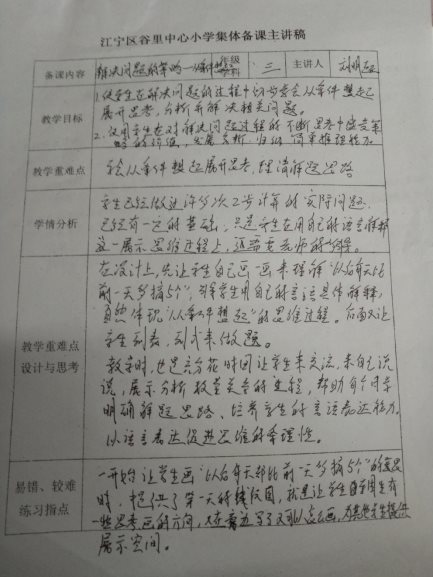 江宁区谷里中心小学集体备课主讲稿
备课内容 解决问题的策略—从条件想起 年级学科 三 主讲人
教学目标 1.使学生在解决问题的过程中初步学会从条件想起
展开思考,分析并解决相关问题。
2.使学生在对解决问题过程的不断思考中感受策
略的价值,发展分析、归纳、简单推理能力
教学重难点 学会从条件想起展开思考,理清解题思路
学情分析 学生已经做过许多次2步计算的实际问题,
已经有一定的基础,只是学生在用自己的语言解释
这一展示思维过程上,还需要老师的
教学重难点设计与思考 在设计上,先让学生自己画一画来理解“以后每天比
前一天多摘5个”,学生用自己的言语具体解释,
自然体现“从条件想起”的思维过程。后面又让
学生列表,列式来做题。
教学时,也是充分花时间让学生来交流,来自己说
说,展示分析数量关系的过程,帮助每个同学
明确解题思路、培养学生的言语表达能力,
以语言表达促进思维的条理性。
易错、较难练习指点 一开始让学生画“以后每天都比前一天多摘5个”的意思
时,提供了第一天的线段图,就是让学生自由有
一些思考画的方向,
展示空间。